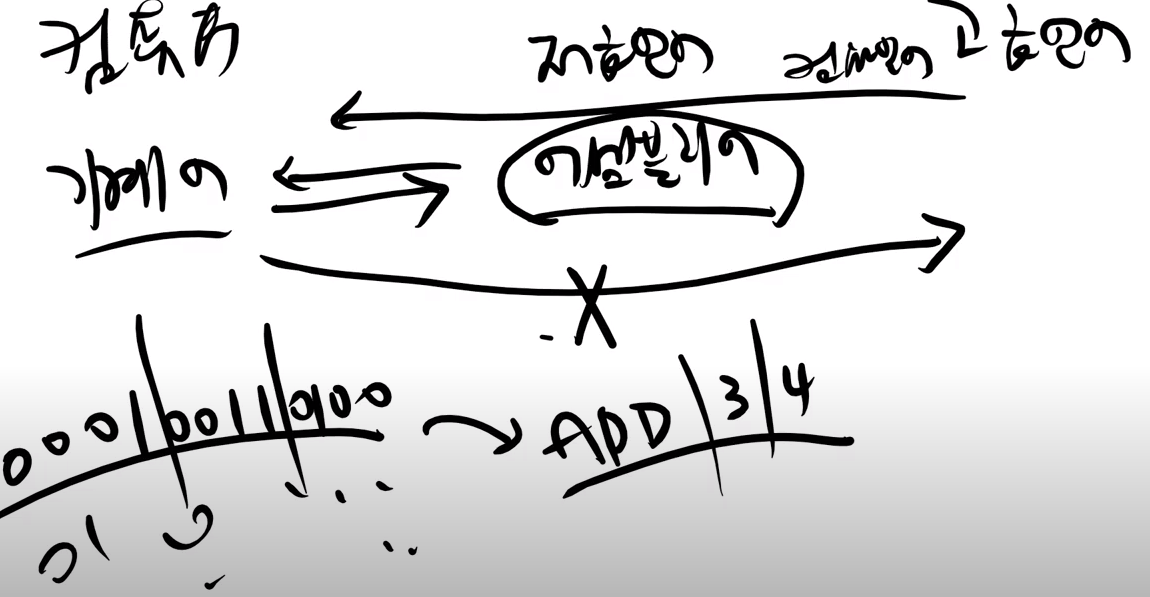 컴퓨터 저급언어 컴파일언어 고급언어
기계어 어셈블리어
X
0001 0011 0100 ADD 3 4